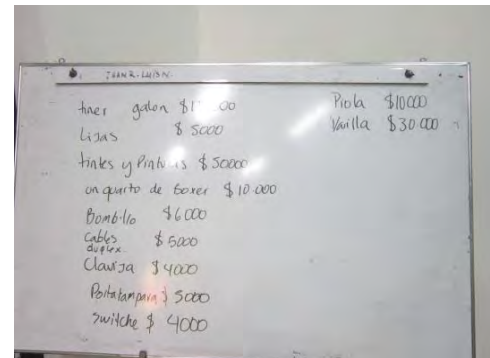 JUAN R. LUIS N.
tiner galon $1 00
Lijas $ 5000
tintes y Pinturas $ 50000
un quarto de boxer $ 10.000
Bombillo $ 6000
Cables duplex. $ 5000
Clavija $ 4000
Portalampara $ 5000
Switche $ 4000
Piola $ 10000
Varilla $ 30.000